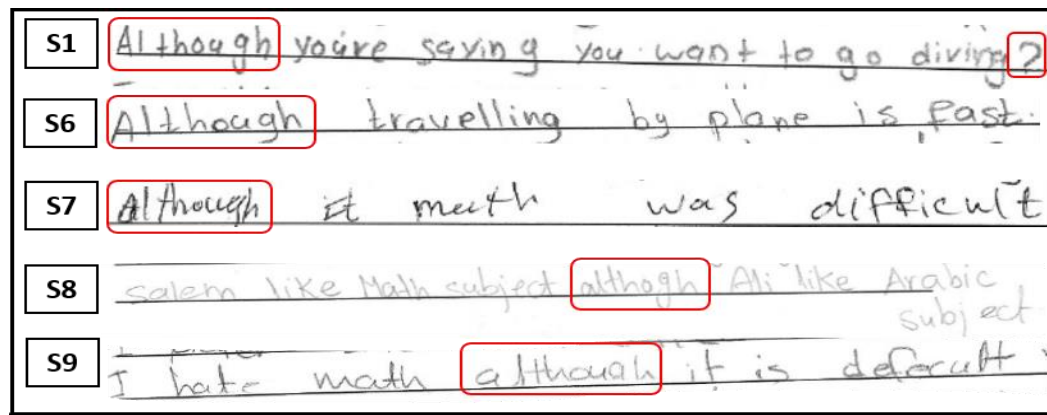 S1 Although you're saying you want to go diving?
S6 Although travelling by plane is fast.
S7 Although it math was difficult
S8 salem like Math subject althogh Ali like Arabic
subject
S9 I hate math although it is defecult